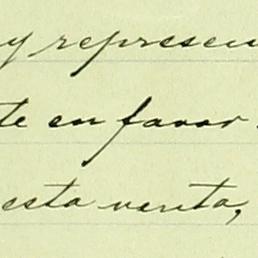 y represen
te en favor
esta venta,